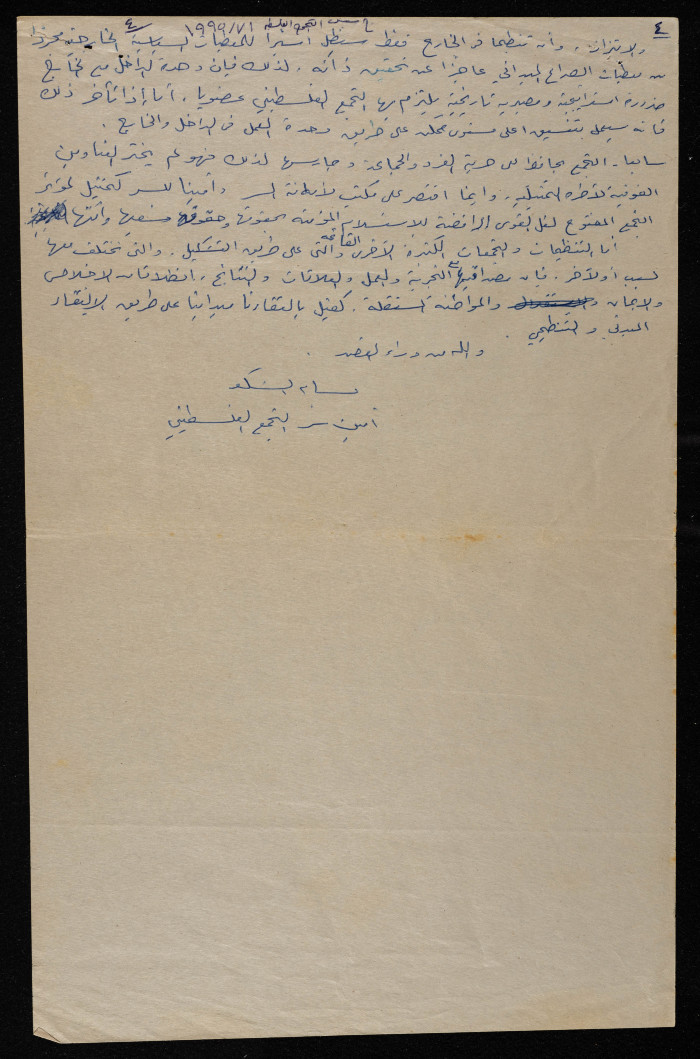 ٤
تأسيس التجمع ١٩٩٩/٧١ ٤
والابتزاز، وأن تنظيما في الخارج فقط سيظل أسيرا للمعطيات السياسية الخارجية مجردا
من معطيات الصراع الميداني عاجزا عن تحقيق ذاته. لذلك فإن وحدة الداخل مع الخارج
ضرورة استراتيجية ومصيرية تاريخية يلتزم بها التجمع الفلسطيني عضويا، أما إذا تأخر ذلك
فانه سيعمل بتنسيق اعلى مستوى ممكن على طريق وحدة العمل في الداخل والخارج.
سابعا. التجمع يحافظ على حرية الفرد والجماعة و لذلك فهو لم يختر العناوين
الفوقية لأطره التمثيلية. وإنما اقتصر على مكتب لأمانة السر وأمينا للسر كتمثيل لمؤتمر
التجمع المفتوح لكل القوى الرافضة للاستسلام المؤمنة بحقوق شعبها وأمتها
أما التنظيمات والتجمعات الكثيرة الأخرى القائمة والتي على طريق التشكيل. والتي نختلف معها
لسبب أو لآخر. فإن مصداقية التجربة والعمل والعلاقات والنتائج، انطلاقا من الاخلاص
والايمان والمواطنة المستقلة. كفيل بالتقارئنا ميدانيا على طريق الالتقاء
المبدئي والتنظيمي.
والله من وراء القصد.
بسام الشكعة
أمين سر التجمع الفلسطيني